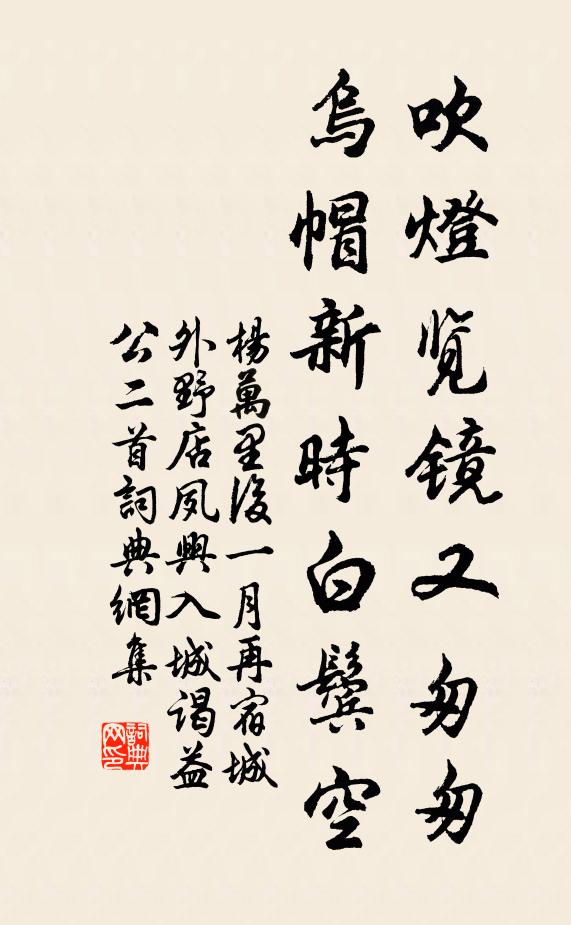 吹燈览镜又匆匆
烏帽新時白鬓空
楊萬里後一月再宿城
外野店夙興入城谒益
公二首詞典網集
詞典网印